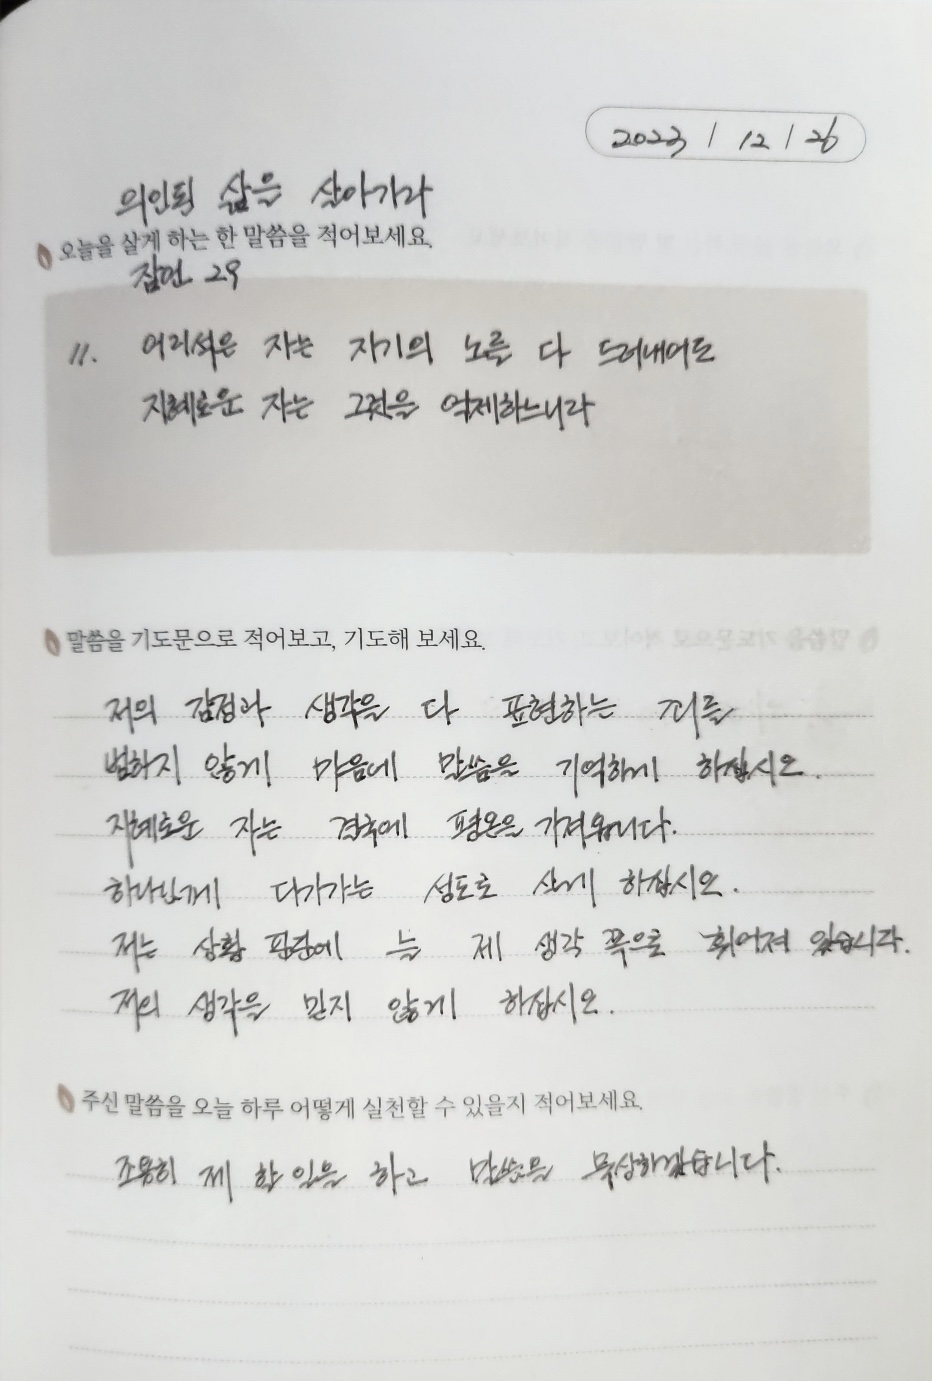 2023 / 12 / 26
의인된 삶을 살아가라
오늘을 살게 하는 한 말씀을 적어보세요.
잠언 29
11. 어리석은 자는 자기의 노를 다 드러내어도
지혜로운 자는 그것을 억제하느니라
말씀을 기도문으로 적어보고, 기도해 보세요.
저의 감정과 생각을 다 표현하는 죄를
범하지 않게 마음에 말씀을 기억하게 하십시오.
지혜로운 자는 결국에 평온을 가져옵니다.
하나님께 다가가는 성도로 살게 하십시오.
저는 상황 판단에 늘 제 생각 쪽으로 휘어져 있습니다.
저의 생각을 믿지 않게 하십시오.
주신 말씀을 오늘 하루 어떻게 실천할 수 있을지 적어보세요.
조용히 제 할 일을 하고 말씀을 묵상하겠습니다.